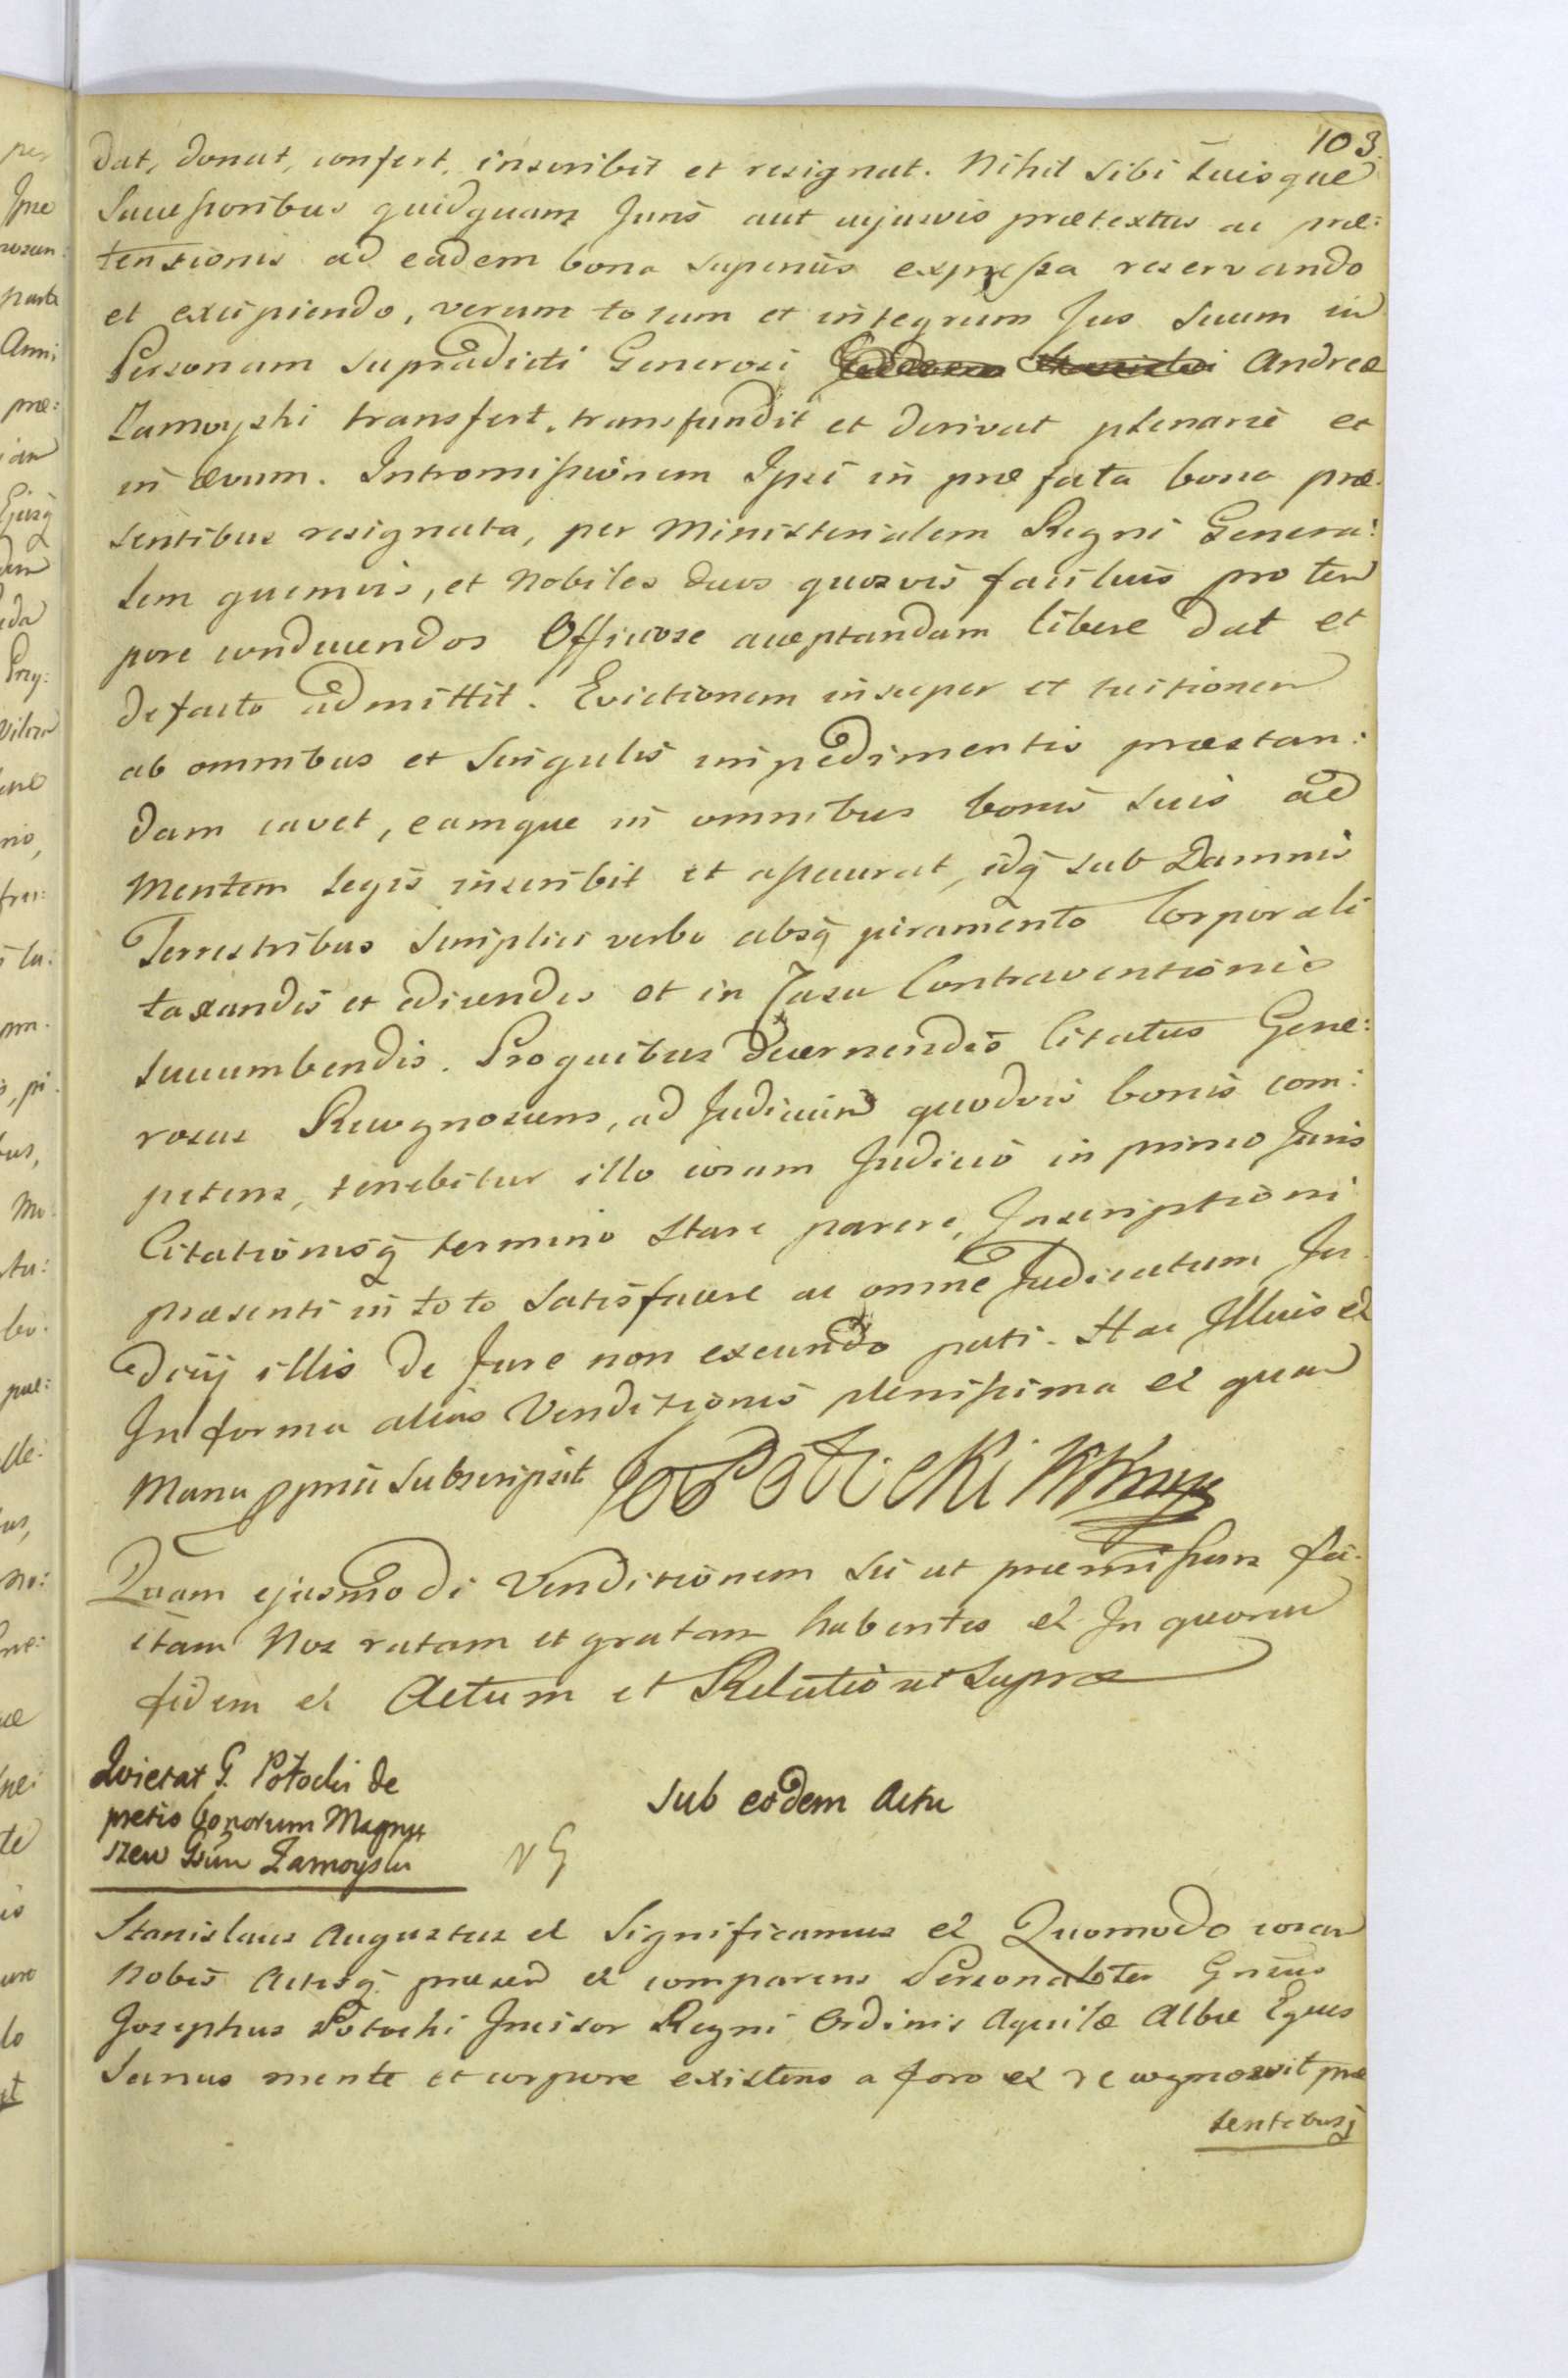 103
dat, donat, confert, inscribit et resignat. Nihil sibi suisque
Successoribus quidquam Juris aut cujusvis prætextus ac præ:
tensionis ad eadem bona superius expressa reservando
et excipiendo, verum totum et integrum Jus suum in
Personam supradicti Generosi Andreæ
Zamoyski transfert, transfundit et derivat plenarie et
in ævum. Intromissionem Ipsi in præfata bona præ:
sentibus resignata, per Ministerialem Regni Genera:
lem quemvis, et Nobiles duos quosvis facilius pro tem
pore conducendos Officiose acceptandam libere dat et
defacto admittit. Evictionem insuper et tuitionem
ab omnibus et singulis impedimentis præstan:
dam cavet, eamque in omnibus bonis suis ad
Mentem Legis inscribit et assecurat, idq sub Damnis
Terrestribus simplici verbo absq juramento Corporali
taxandis et edicendis et in Casu Contraventionis
succumbendis. Pro quibus decernendis Citatus Gene:
rosus Recognoscens, ad Judicium quodvis bonis com:
petens, tenebitur illo coram Judicio in primo Juris
Citationisq termino stare parere, Inscriptioni
præsenti in toto satisfacere ac omne Judicatum Ju:
dicij illis de Jure non exeundo pati. Hac Illius et
In forma alias Venditionis plenissima et quam
Manu ppria subscripsit Potocki
Quam ejusmodi Venditionem sic ut præmissum fa:
ctam Nos ratam et gratam habentes et In quorum
fidem et Actum et Relatio ut supra
Quietat G. Potocki de
pretio bonorum Magnu
szew Gsum Zamoyski
Sub eodem Actu
Stanislaus Augustus et Significamus et Quomodo coram
Nobis Actisq præsen et comparens Personaliter Gnsus
Josephus Potocki Incisor Regni Ordinis Aquilæ Albæ Eques
Sanus mente et corpore existens a foro et recognovit præ
sentibusq